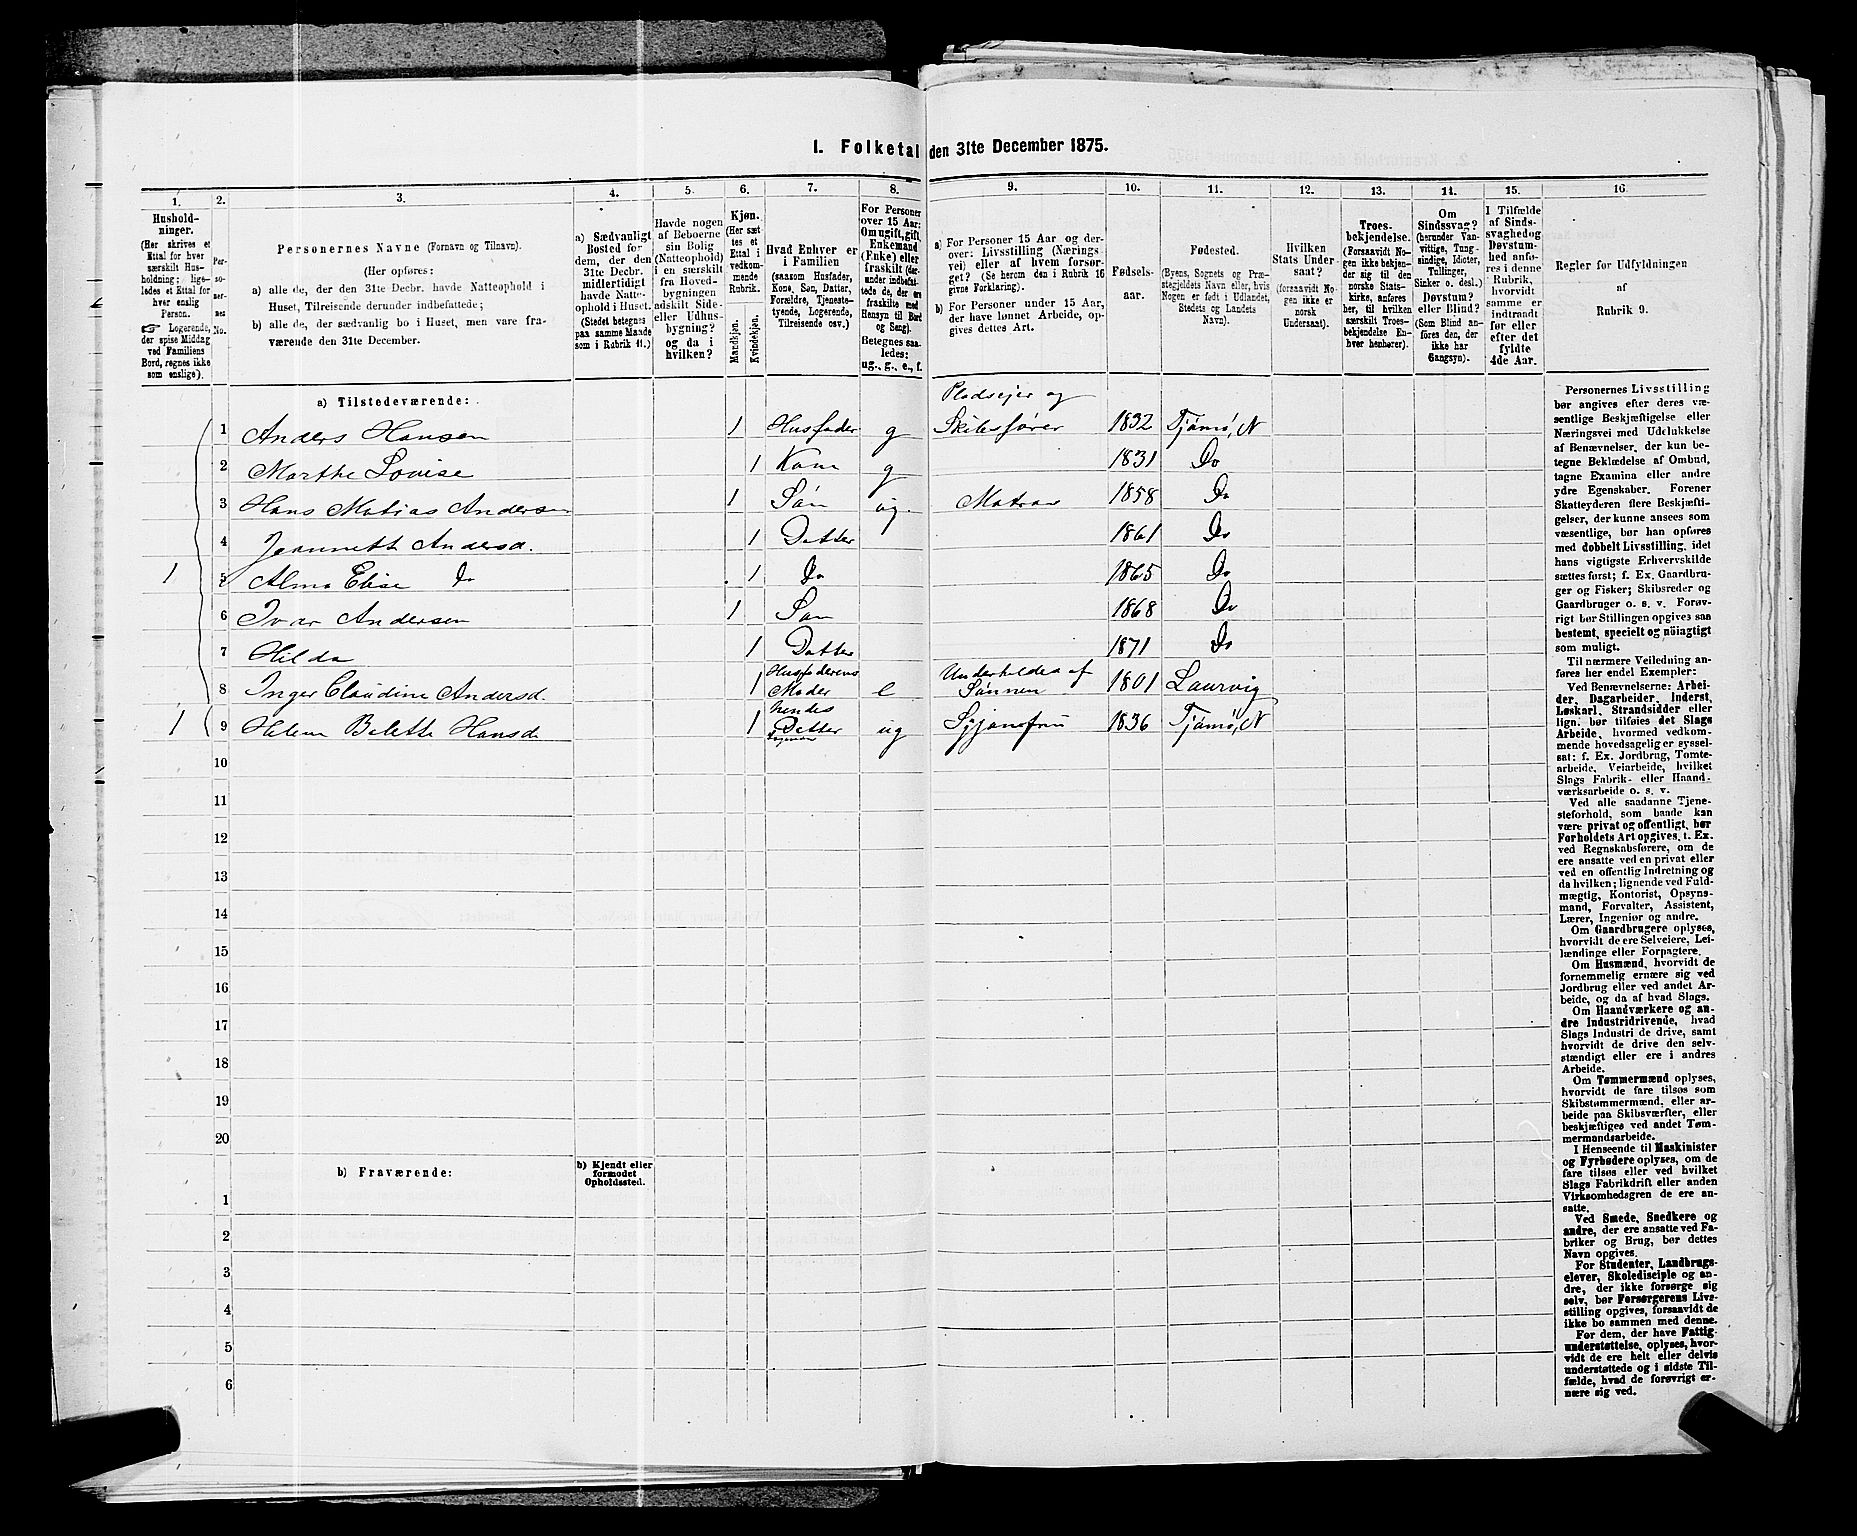 I. Folketal den 31te December 1875.
1. 2. 3. 4. 5. 6. 7. 8. 9. 10. 11. 12. 13. 14. 15. 16.
Hushold-
ninger.
(Her skrives et
Ettal for hver
særskilt Hus-
holdning; lige-
ledes et Ettal for
hver enslig
Person.
☞ Logerende,
der spise Middag
ved Familiens
Bord, regnes ikke
som enslige).
Per-
so-
ner-
nes
No.
Personernes Navne (Fornavn og Tilnavn).
(Her opføres:
a) alle de, der den 31te Decbr. havde Natteophold i
Huset, Tilreisende derunder indbefattede;
b) alle de, der sædvanlig bo i Huset, men vare fra-
værende den 31te December.
a) Sædvanligt
Bosted for
dem, der den
31te Decbr.
midlertidigt
havde Natte-
ophold i Huset.
(Stedet betegnes
paa samme Maade
som i Rubrik 11.)
Havde nogen
af Beboerne
sin Bolig
(Natteophold)
i en særskilt
fra Hoved-
bygningen
adskilt Side-
eller Udhus-
bygning?
og da i
hvilken?
Kjøn.
(Her sæt-
tes et
Ettal i
vedkom-
mende
Rubrik.
Mandkjøn.
Kvindekjøn.
Hvad Enhver er
i Familien
(saasom Husfader,
Kone, Søn, Datter,
Forældre, Tjeneste-
tyende, Logerende,
Tilreisende osv.)
For Personer
over 15 Aar:
Om ugift, gift,
Enkemand
(Enke) eller
fraskilt (der-
under indbefat-
tede de, der ere
fraskilte med
Hensyn til Bord
og Seng).
Betegnes saa-
ledes:
ug., g., e., f.
a) For Personer 15 Aar og der-
over: Livsstilling (Nærings-
vei) eller af hvem forsør-
get? (Se herom den i Rubrik 16
givne Forklaring).
b) For Personer under 15 Aar,
der have lønnet Arbeide, op-
gives dettes Art.
Fødsels-
aar.
Fødested.
(Byens, Sognets og Præ-
stegjeldets Navn eller, hvis
Nogen er født i Udlandet,
Stedets og Landets
Navn).
Hvilken
Stats Under-
saat?
(forsaavidt No-
gen ikke er
norsk
Undersaat).
Troes-
bekjendelse.
(Forsaavidt No-
gen ikke bekjen-
der sig til den
norske Stats-
kirke, anføres
her, til hvilken
særskilt Troes-
bekjendelse En-
hver henhører).
Om
Sindssvag?
(herunder Van-
vittige, Tung-
sindige, Idioter,
Tullinger,
Sinker o. desl.)
Døvstum?
eller Blind?
(Som Blind an-
føres den, der
ikke har
Gangsyn).
I Tilfælde
af Sinds-
svaghed og
Døvstum-
hed anfø-
res i denne
Rubrik,
hvorvidt
samme er
indtraadt
før eller
efter det
fyldte
4de Aar.
Regler for Udfyldningen
af
Rubrik 9.
a) Tilstedeværende:
Pladsejer og
1 Anders Hansen 1 Husfader g Skibsfører 1832 Tjømø, N
2 Marthe Lovise 1 Kone g 1831 Do
3 Hans Matias Andersen 1 Søn ug. Matros 1858 Do
4 Jeannette Andersd. 1 Datter 1861 Do
1 5 Alma Elise Do 1 Do 1865 Do
6 Ivar Andersen 1 Søn 1868 Do
7 Hilda 1 Datter 1871 Do
Husfaderens Underholdes af
8 Inger Claudine Andersd. 1 Moder e Sønnen 1801 Laurvig
hendes
1 9 Helene Belette Hansd 1 Datter ug Syjomfru 1836 Tjømø, N
10
11
12
13
14
15
16
17
18
19
20
b) Fraværende:
b) Kjendt eller
formodet
Opholdssted.
1
2
3
4
5
6
Personernes Livsstilling
bør angives efter deres væ-
sentlige Beskjæftigelse eller
Næringsvei med Udelukkelse
af Benævnelser, der kun be-
tegne Beklædelse af Ombud,
tagne Examina eller andre
ydre Egenskaber. Forener
Skatteyderen flere Beskjæfti-
gelser, der kunne ansees som
væsentlige, bør han opføres
med dobbelt Livsstilling, idet
hans vigtigste Erhvervskilde
sættes først; f. Ex. Gaardbru-
ger og Fisker; Skibsreder og
Gaardbruger o. s. v. Forøv-
rigt bør Stillingen opgives saa
bestemt, specielt og nøiagtigt
som muligt.
Til nærmere Veiledning an-
føres her endel Exempler:
Ved Benævnelserne: Arbei-
der, Dagarbeider, Inderst,
Løskarl, Strandsidder eller
lign. bør tilføies det Slags
Arbeide, hvormed vedkom-
mende hovedsagelig er syssel-
sat: f. Ex. Jordbrug, Tømte-
arbeide, Veiarbeide, hvilket
Slags Fabrik- eller Haand-
værksarbeide o. s. v.
Ved alle saadanne Tjene-
steforhold, som baade kan
være privat og offentligt, bør
Forholdets Art opgives, t. Ex.
ved Regnskabsførere, om de
ere ansatte ved en privat eller
ved en offentlig Indretning og
da hvilken; lignende ved Fuld-
mægtig, Kontorist, Opsyns-
mand, Forvalter, Assistent,
Lærer, Ingeniør og andre.
Om Gaardbrugere oplyses,
hvorvidt de ere Selveiere, Lei-
lændinge eller Forpagtere.
Om Husmænd, hvorvidt de
fornemmelig ernære sig ved
Jordbrug eller ved andet Ar-
beide, og da af hvad Slags.
Om Haandværkere og an-
dre Industridrivende, hvad
Slags Industri de drive, samt
hvorvidt de drive den selv-
stændigt eller ere i andres
Arbeide.
Om Tømmermænd oplyses,
hvorvidt de fare tilsøs som
Skibstømmermænd, eller ar-
beide paa Skibsværfter, eller
beskjæftiges ved andet Tøm-
mermandsarbeide.
I Henseende til Maskinister
og Fyrbødere oplyses, om de
fare tilsøs eller ved hvilket
Slags Fabrikdrift eller anden
Virksomhedsgren de ere an-
satte.
Ved Smede, Snedkere og
andre, der ere ansatte ved Fa-
briker og Brug, bør dettes
Navn opgives.
For Studenter, Landbrugs-
elever, Skoledisciple og an-
dre, der ikke forsørge sig
selv, bør Forsørgerens Livs-
stilling opgives, forsaavidt de
ikke bo sammen med denne.
For dem, der have Fattig-
understøttelse, oplyses, hvor-
vidt de ere helt eller delvis
understøttede og i sidste Til-
fælde, hvad de forøvrigt er-
nære sig ved.